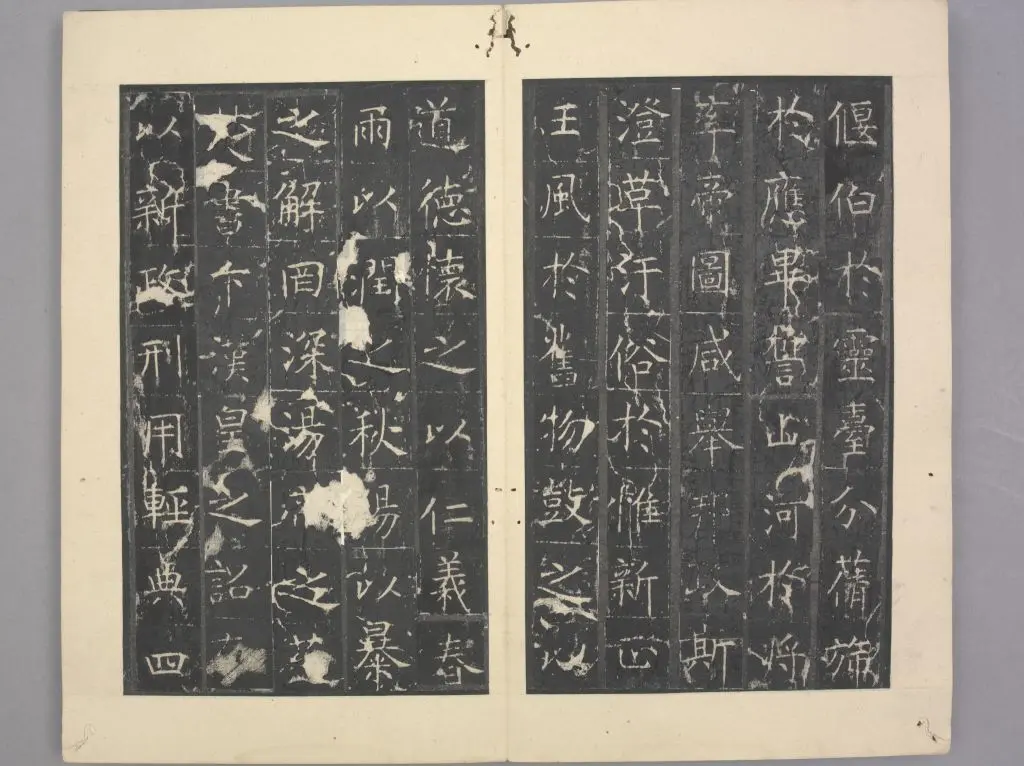 偃伯於靈臺分藩
於應畢誓山河於將
帝圖咸舉以斯
澄草汙俗於惟新正
王風於舊物之以
道德懷之以仁義春
雨以潤之秋陽以暴
之解罔深湯之
書漢皇之詔
以新政刑用輕典四